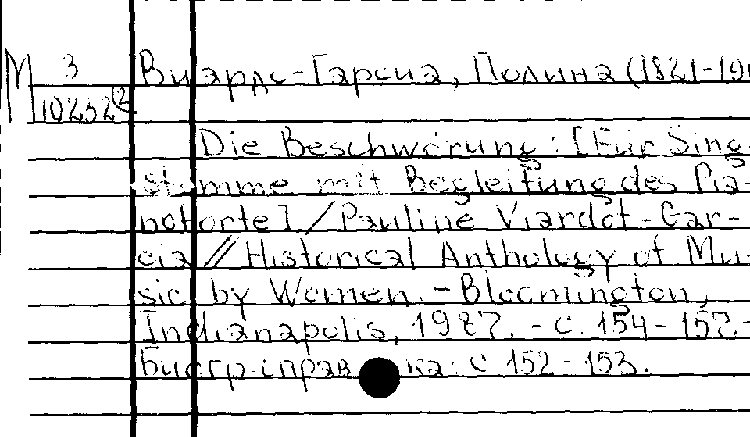 М 3 Виардо-Гарсиа, Полина (1821-19
10252
Die Beschwörung: [Für Sing-
stimme mit Begleitung des Pia-
noforte] / Pauline Viardot-Gar-
cia // Historical Anthology of Mu-
sic by Women. - Bloomington,
Indianapolis, 1987. - С. 154-157.-
Биогр. справка: с 152-153.